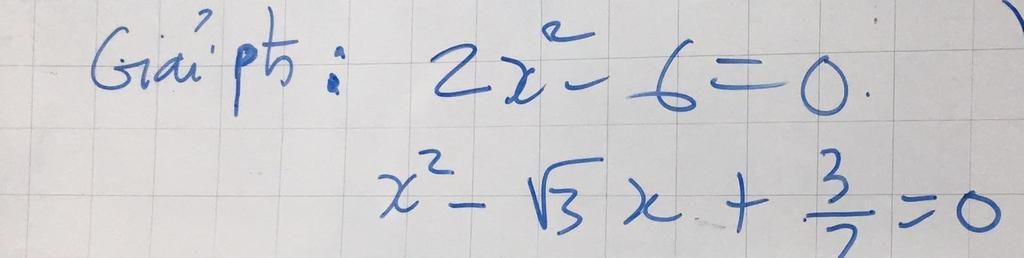 Giải pt: 2x² - 6 = 0.
x² - √3 x + 3/2 = 0